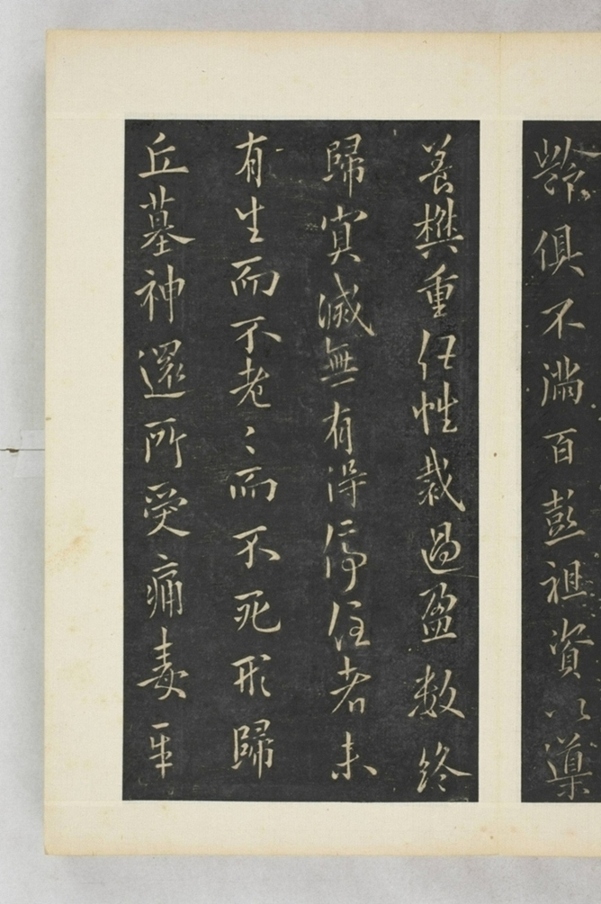 龄俱不满百彭祖资以導
養樊重任性裁過盈数終
歸冥滅無有得停住者未
有生而不老〻而不死形歸
丘墓神還所受痛毒辛